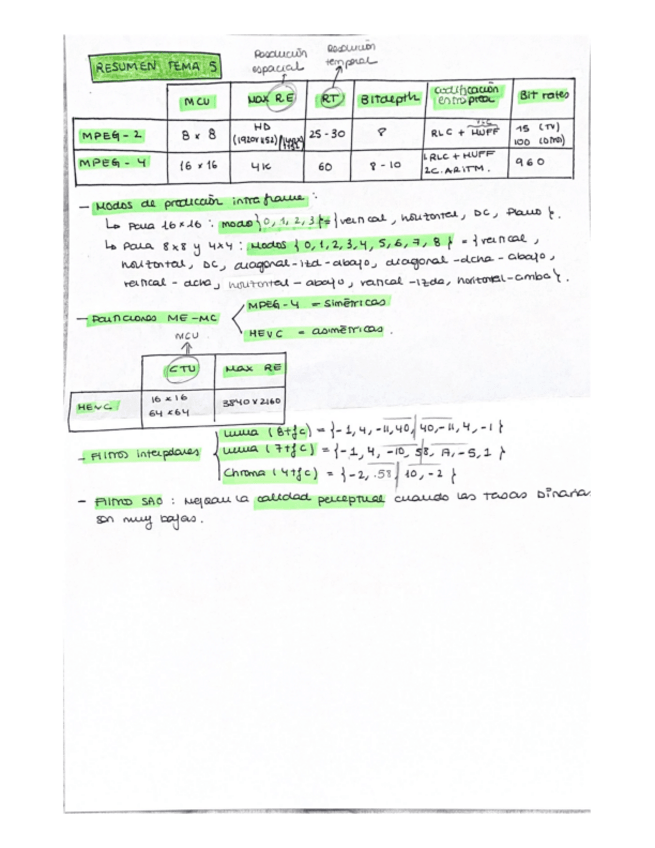 RESUMEN TEMA 5
Resolución espacial
Resolución temporal
MCU MAX RE RT Bitdepth codificación entrópica Bit rates
MPEG-2 8 x 8 HD (1920x1152) 25-30 8 RLC + HUFF 15 (TV) 100 (DVD)
MPEG-4 16 x 16 4K 60 8-10 1.RLC + HUFF 2C.ARITM. 960
- Modos de predicción intraframe :
↳ Para 16x16 : modo {0, 1, 2, 3} = {vertical, horizontal, DC, Plano}.
↳ Para 8x8 y 4x4 : Modos {0,1,2,3,4,5,6,7,8} = {vertical,
horizontal, DC, diagonal-izd-abajo, diagonal-dcha-abajo,
vertical-dcha, horizontal-abajo, vertical-izda, horizontal-arriba}.
- Particiones ME-MC
MPEG-4 = simétricas
HEVC = asimétricas.
MCU
CTU MAX RE
HEVC 16 x 16 64 x 64 3840x2160
- Filtros interpolares
Luma (8+fc) = {-1, 4, -11, 40, 40, -11, 4, -1}
Luma (7+fc) = {-1, 4, -10, 58, 17, -5, 1}
Chroma (4+fc) = {-2, 58, 10, -2}
- Filtro SAO : Mejoran la calidad perceptual cuando las tasas binaria
son muy bajas.